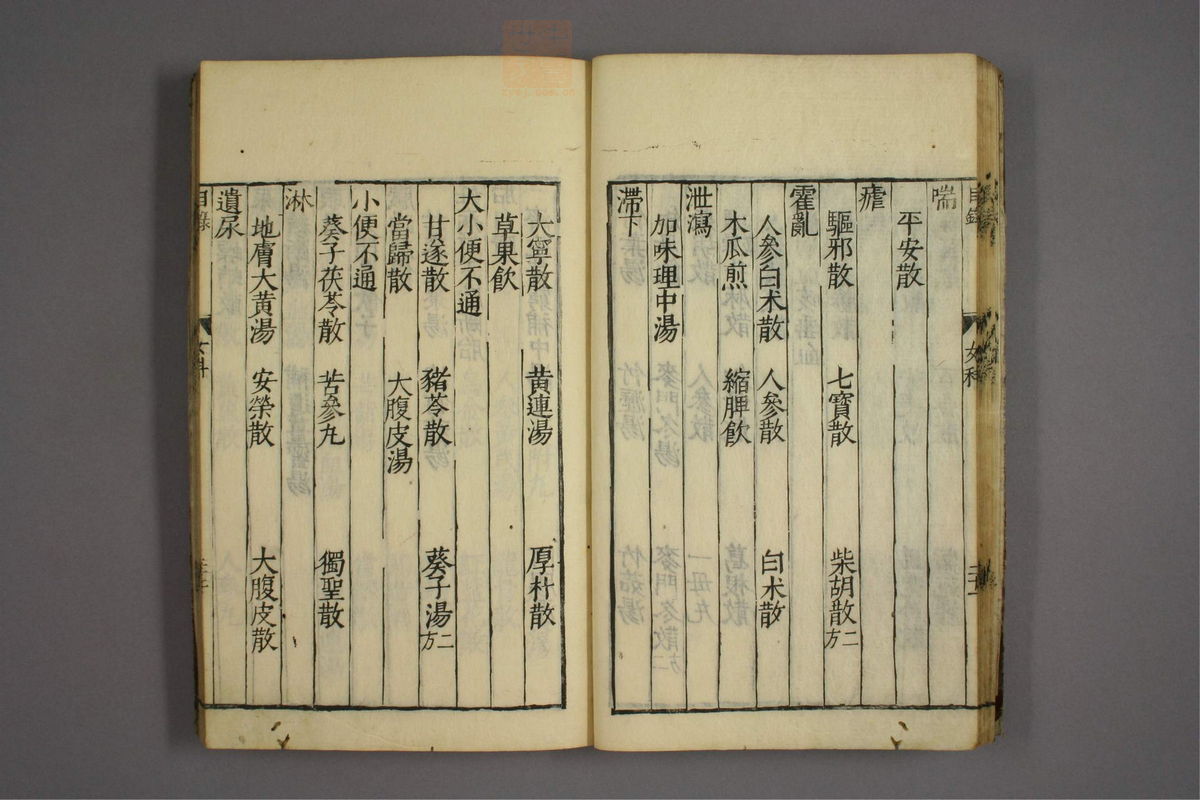 喘
平安散
瘧
驅邪散 七寶散 柴胡散二方
霍亂
人參白术散 人參散 白术散
木瓜煎 縮脾飲
泄瀉
加味理中湯
滯下
大寧散 黄連湯 厚朴散
草果飲
大小便不通
甘遂散 豬苓散 葵子湯二方
當歸散 大腹皮湯
小便不通
葵子茯苓散 苦參丸 獨聖散
淋
地膚大黄湯 安榮散 大腹皮散
遺尿
目錄 女科